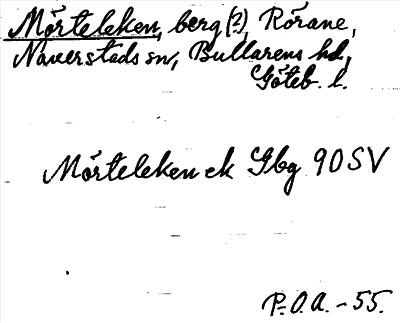 Mörteleken, berg (?), Rörane,
Naverstads sn, Bullarens hd,
Göteb. l.
Mörteleken ek Gbg 90 SV
P.O.A. - 55.